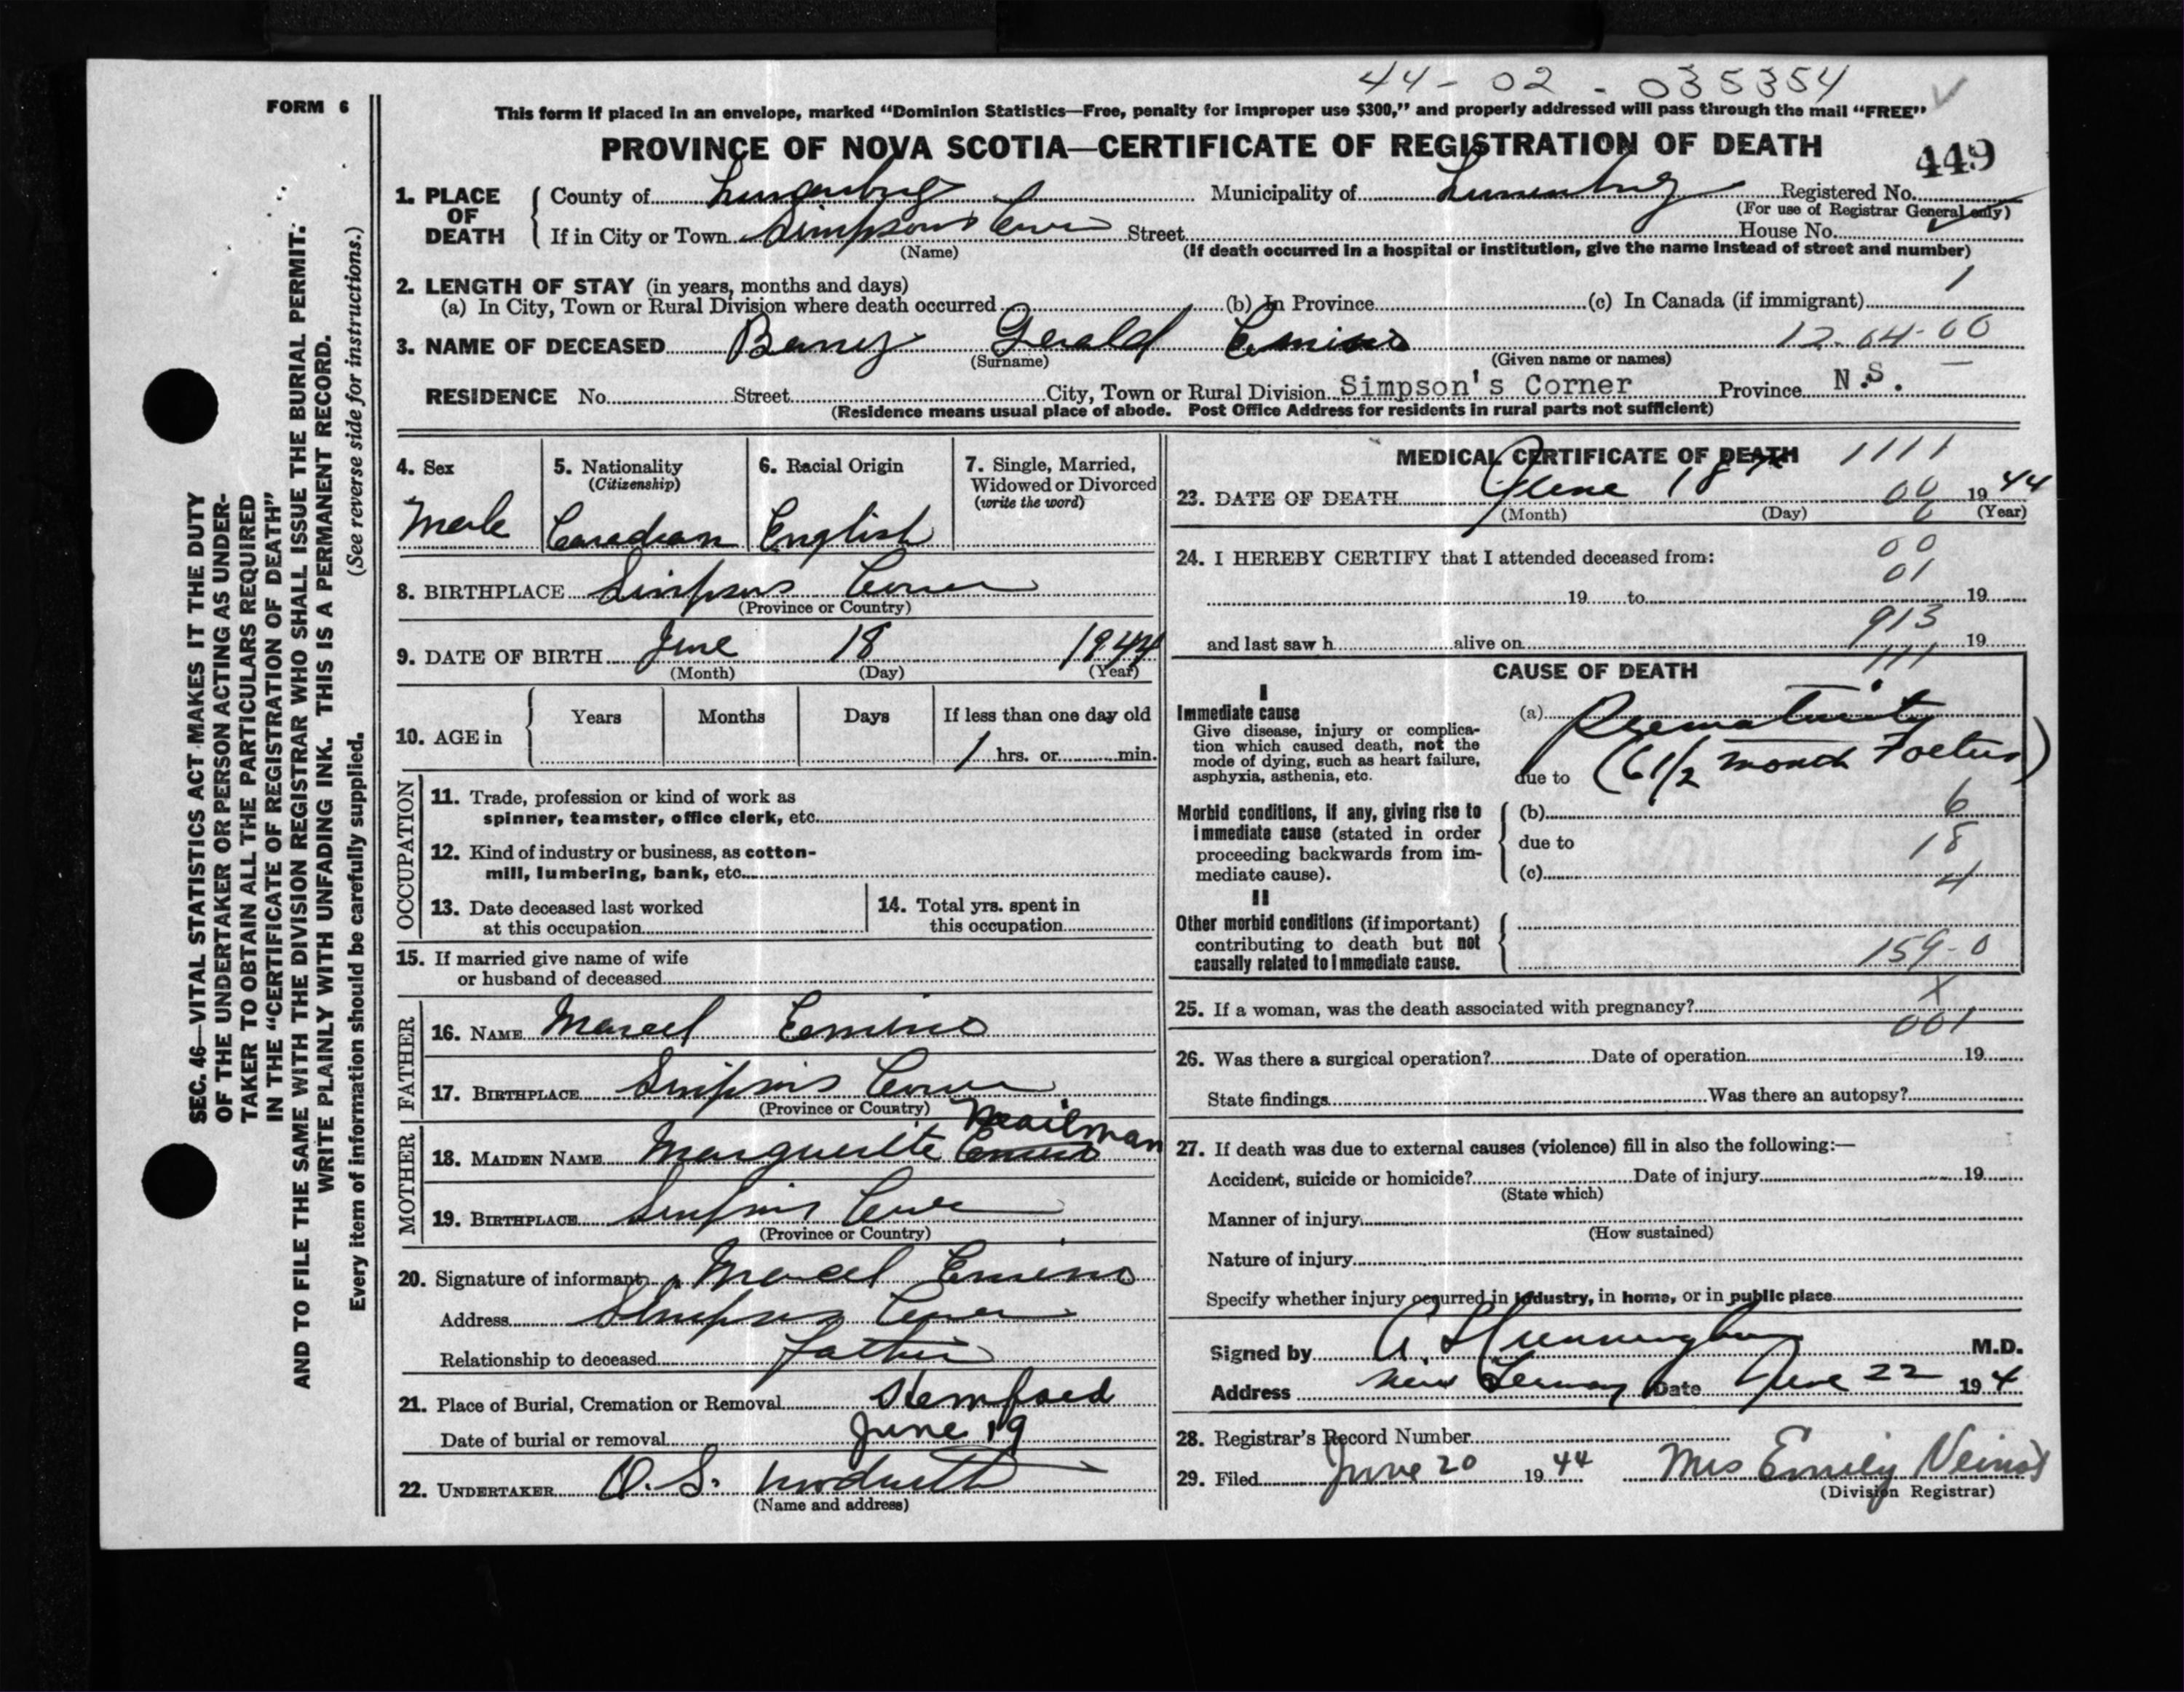 44-02-035354
FORM 6
This form if placed in an envelope, marked “Dominion Statistics—Free, penalty for improper use $300,” and properly addressed will pass through the mail “FREE”
PROVINCE OF NOVA SCOTIA—CERTIFICATE OF REGISTRATION OF DEATH
449
1. PLACE OF DEATH
County of Lunenburg Municipality of Lunenburg Registered No.
(For use of Registrar General only)
If in City or Town Simpsons Corner Street House No.
(Name) (If death occurred in a hospital or institution, give the name instead of street and number)
2. LENGTH OF STAY (in years, months and days) 1
(a) In City, Town or Rural Division where death occurred (b) In Province (c) In Canada (if immigrant)
3. NAME OF DECEASED Gerald 12-04-00
(Surname) (Given name or names)
RESIDENCE No. Street City, Town or Rural Division Simpson's Corner Province N.S.
(Residence means usual place of abode. Post Office Address for residents in rural parts not sufficient)
4. Sex
Male
5. Nationality
(Citizenship)
Canadian
6. Racial Origin
English
7. Single, Married,
Widowed or Divorced
(write the word)
8. BIRTHPLACE Simpsons Corner
(Province or Country)
9. DATE OF BIRTH June 18 1944
(Month) (Day) (Year)
10. AGE in
Years Months Days If less than one day old
1 hrs. or min.
OCCUPATION
11. Trade, profession or kind of work as
spinner, teamster, office clerk, etc.
12. Kind of industry or business, as cotton-
mill, lumbering, bank, etc.
13. Date deceased last worked
at this occupation
14. Total yrs. spent in
this occupation
15. If married give name of wife
or husband of deceased
FATHER
16. NAME Marcel
17. BIRTHPLACE Simpsons Corner
(Province or Country)
MOTHER
Mailman
18. MAIDEN NAME Marguerite
19. BIRTHPLACE Simpsons Corner
(Province or Country)
20. Signature of informant Marcel
Address Simpsons Corner
Relationship to deceased Father
21. Place of Burial, Cremation or Removal Hemford
Date of burial or removal June 19
22. UNDERTAKER O. S.
(Name and address)
MEDICAL CERTIFICATE OF DEATH 1111
23. DATE OF DEATH June 18th 00 1944
(Month) (Day) 6 (Year)
24. I HEREBY CERTIFY that I attended deceased from: 00
01
19 to 19
913
and last saw h alive on 19
111
CAUSE OF DEATH
I
Immediate cause
Give disease, injury or complica-
tion which caused death, not the
mode of dying, such as heart failure,
asphyxia, asthenia, etc.
(a) Prematurity
due to (6 1/2 month Foetus)
Morbid conditions, if any, giving rise to
immediate cause (stated in order
proceeding backwards from im-
mediate cause).
(b) 6
due to 18
(c) 4
II
Other morbid conditions (if important)
contributing to death but not
causally related to immediate cause.
159-0
25. If a woman, was the death associated with pregnancy? X
001
26. Was there a surgical operation? Date of operation 19
State findings Was there an autopsy?
27. If death was due to external causes (violence) fill in also the following:—
Accident, suicide or homicide? Date of injury 19
(State which)
Manner of injury
(How sustained)
Nature of injury
Specify whether injury occurred in industry, in home, or in public place
Signed by M.D.
Address New Germany Date June 22 194
28. Registrar's Record Number
29. Filed June 20 1944 Mrs Emily Veinot
(Division Registrar)
SEC. 46—VITAL STATISTICS ACT MAKES IT THE DUTY
OF THE UNDERTAKER OR PERSON ACTING AS UNDER-
TAKER TO OBTAIN ALL THE PARTICULARS REQUIRED
IN THE “CERTIFICATE OF REGISTRATION OF DEATH”
AND TO FILE THE SAME WITH THE DIVISION REGISTRAR WHO SHALL ISSUE THE BURIAL PERMIT.
WRITE PLAINLY WITH UNFADING INK. THIS IS A PERMANENT RECORD.
Every item of information should be carefully supplied. (See reverse side for instructions.)